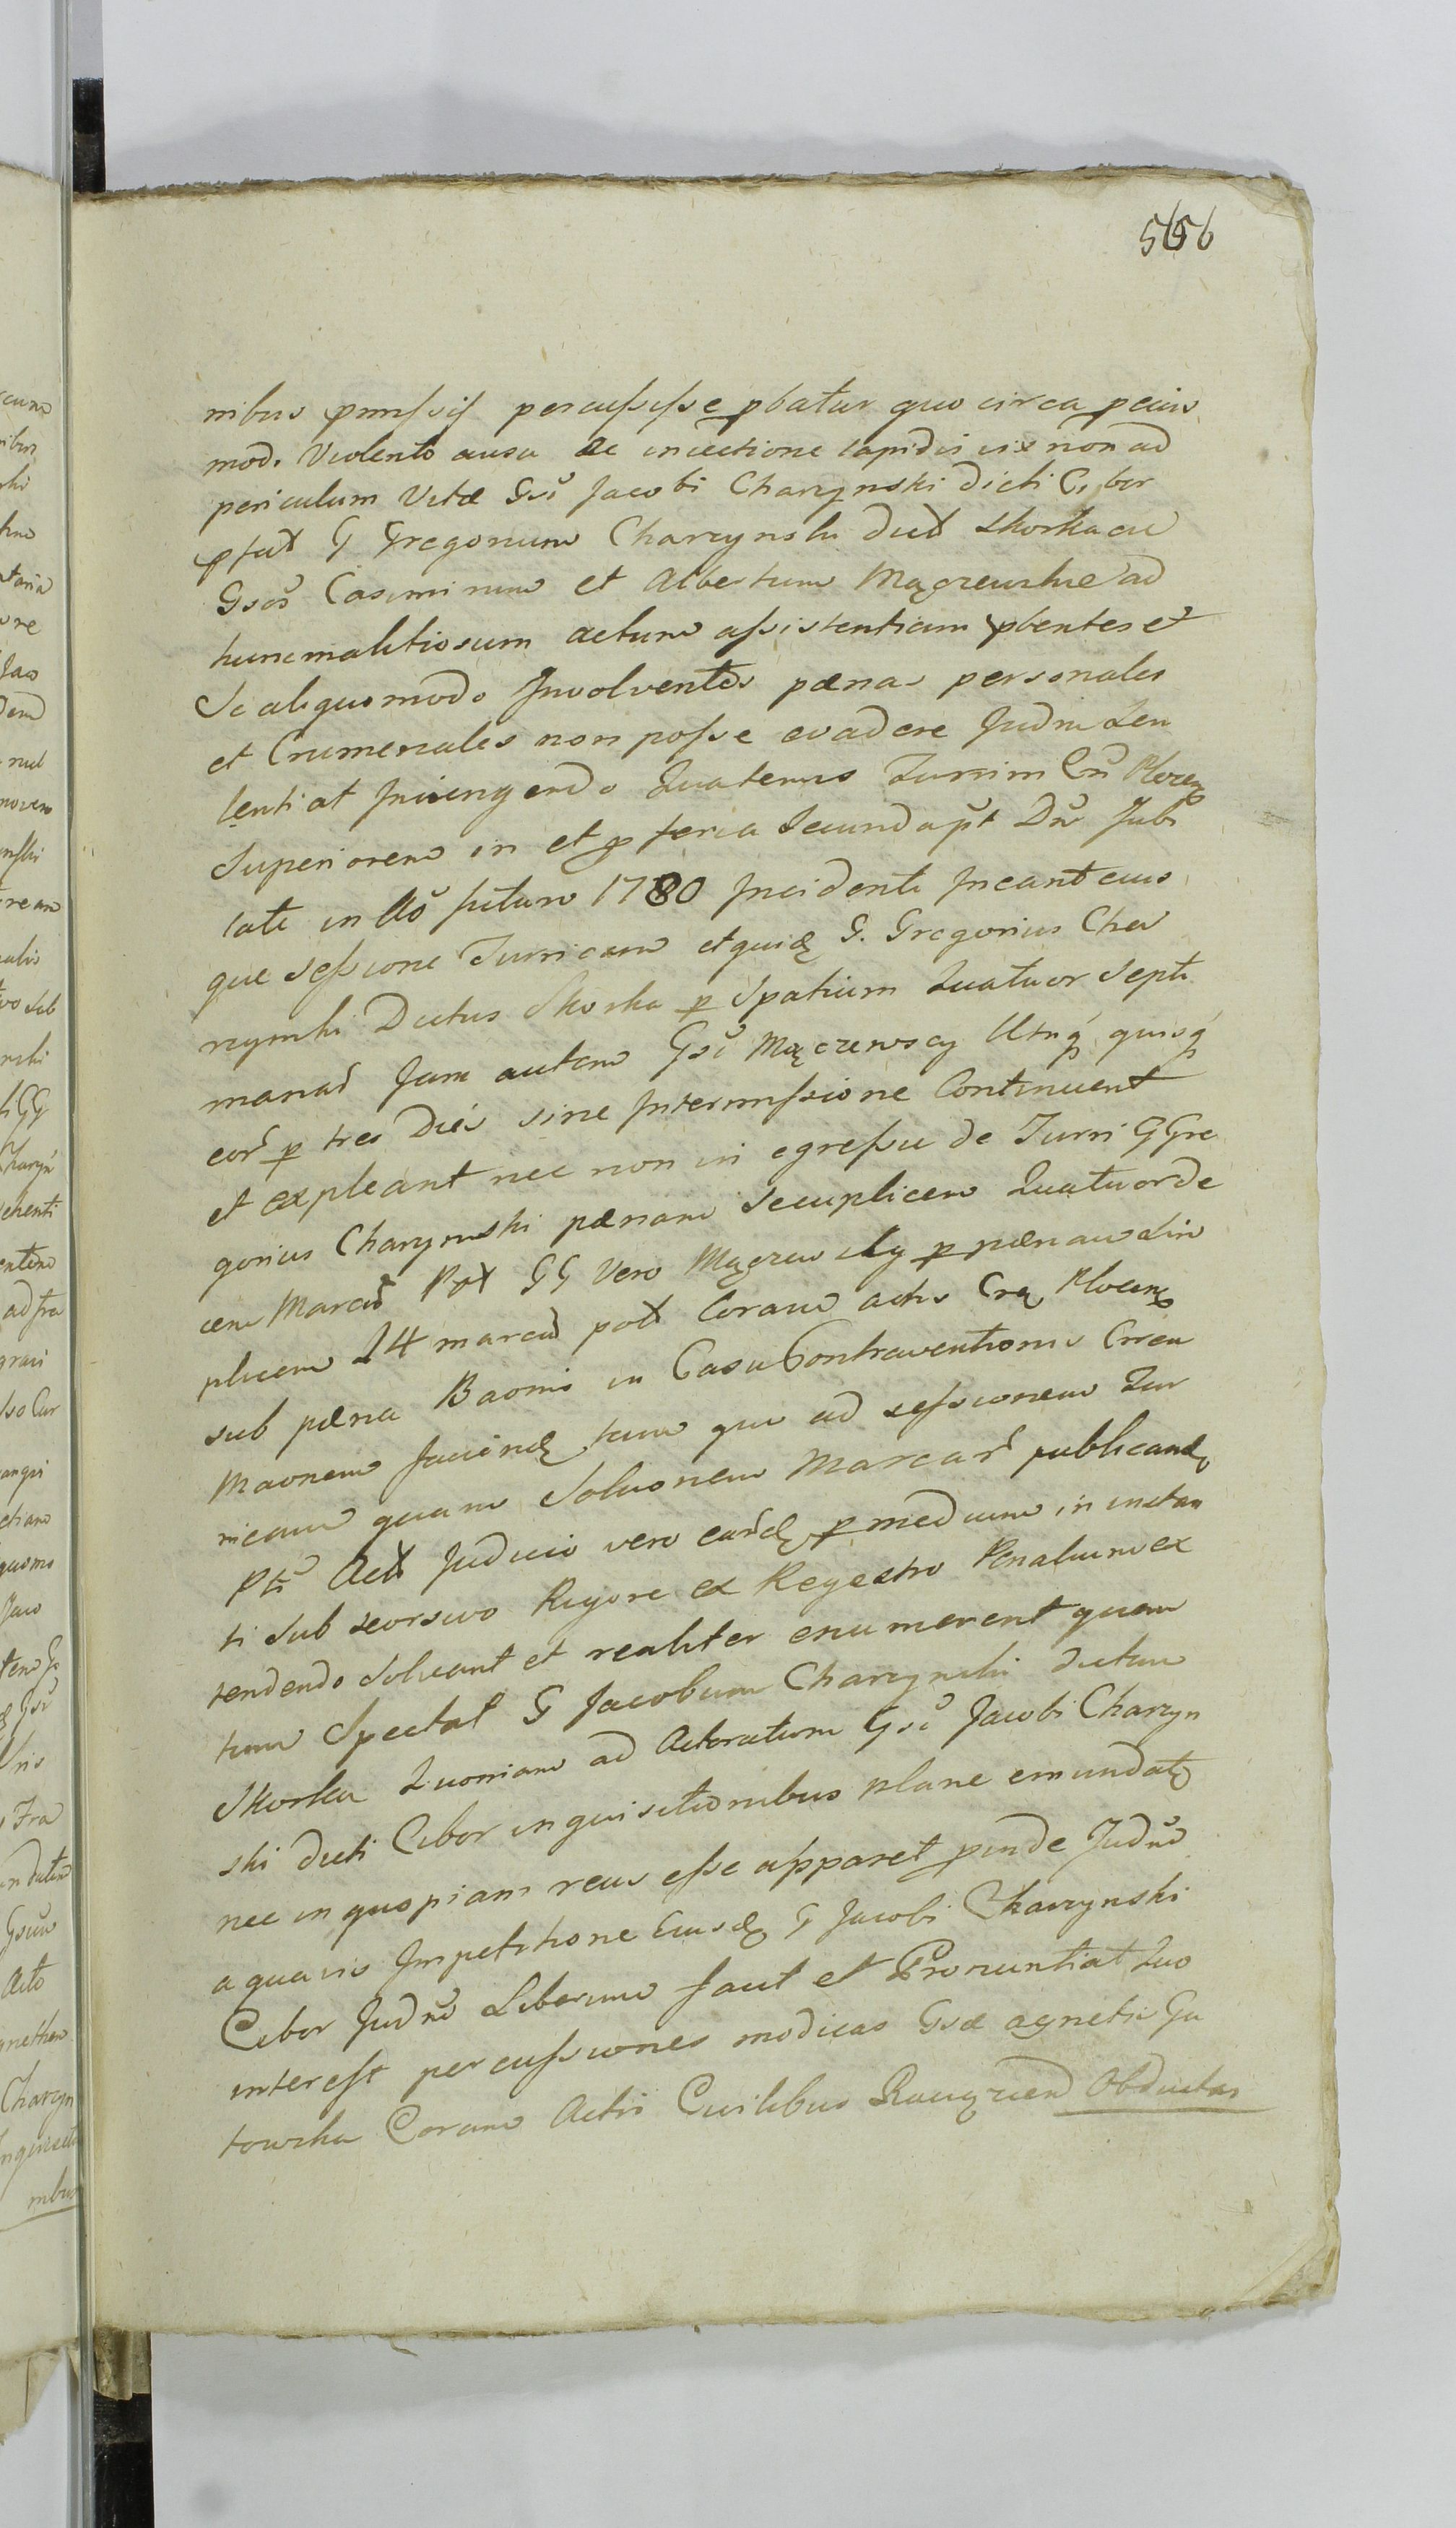 5656
nibus pmissis percussisse pbatur quo circa p eius
mod. Violento ausu ac iniectione lapidis vix non ad
periculum Vitæ Gsi Jacobi Charzynski dicti Cibor
pfat G Gregorium Charzynski dict Skorka ac
Gsos Casimirum et Albertum Mączewskie ad
hunc malitiosum actum assistentiam pbentes et
Se aliquomodo Involventes pænas personales
et Crumenales non posse evadere Judm Sen
tentiat Iniungendo Quatenus Turrim Cri Plocen
Superiorem in et p feria Secunda pt Dm Jubi
late in Ao futuro 1780 Incidenti Ineant eius
que Sessione Turricam et quid G. Gregorius Char
zynski Dictus Skorka p Spatium Quatuor Septi
manar Jam autem Gsi Mączewscy Utrq quisq
eor p tres Dies sine Intermissione Continuent
et expleant nec non in egressu de Turri G Gre
gorius Charzynski pænam Secuplicem Quatuorde
cem Marcar Pol GG Vero Mączewscy p pænam Sim
plicem 14 marcar pol Coram actis Crq Plocen
sub pæna Banni in Casu Contraventionis Crica
maonem faciend tam qm ad sessionem Tur
ricam quam Soluonem Marcar publicand
Pti Act Judicio vero eard p medium in instan
ti sub seorsivo Rigore ex Regestro Pænalium ex
tendendo Solvant et realiter enumerent quan
tum Spectat G Jacobum Charzynski dictum
Skorka Quoniam ad Actoratum Gsi Jacobi Charzyn
ski dicti Cibor inquisitionibus plane emundat
nec in quopiam reus esse apparet pinde Judm
a quavis Impetitione Eiusd G Jacobi Charzynski
Cibor Judm Liberum facit et Pronuntiat Quo
interest percussiones modicas Gsæ Agnetis Gu
towska Coram Actis Civilibus Raciązen Obductas